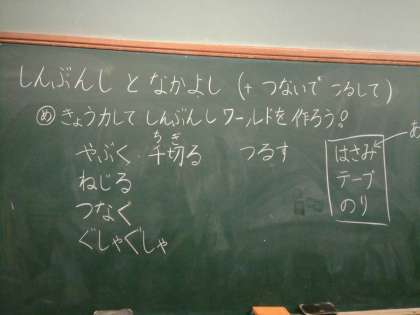 しんぶんし と なかよし (+ つないで つるして)
め きょう力して しんぶんし ワールドを 作ろう!
やぶく・千切る つるす
ちぎ
ねじる
つなぐ
ぐしゃぐしゃ
はさみ
テープ
のり
あ